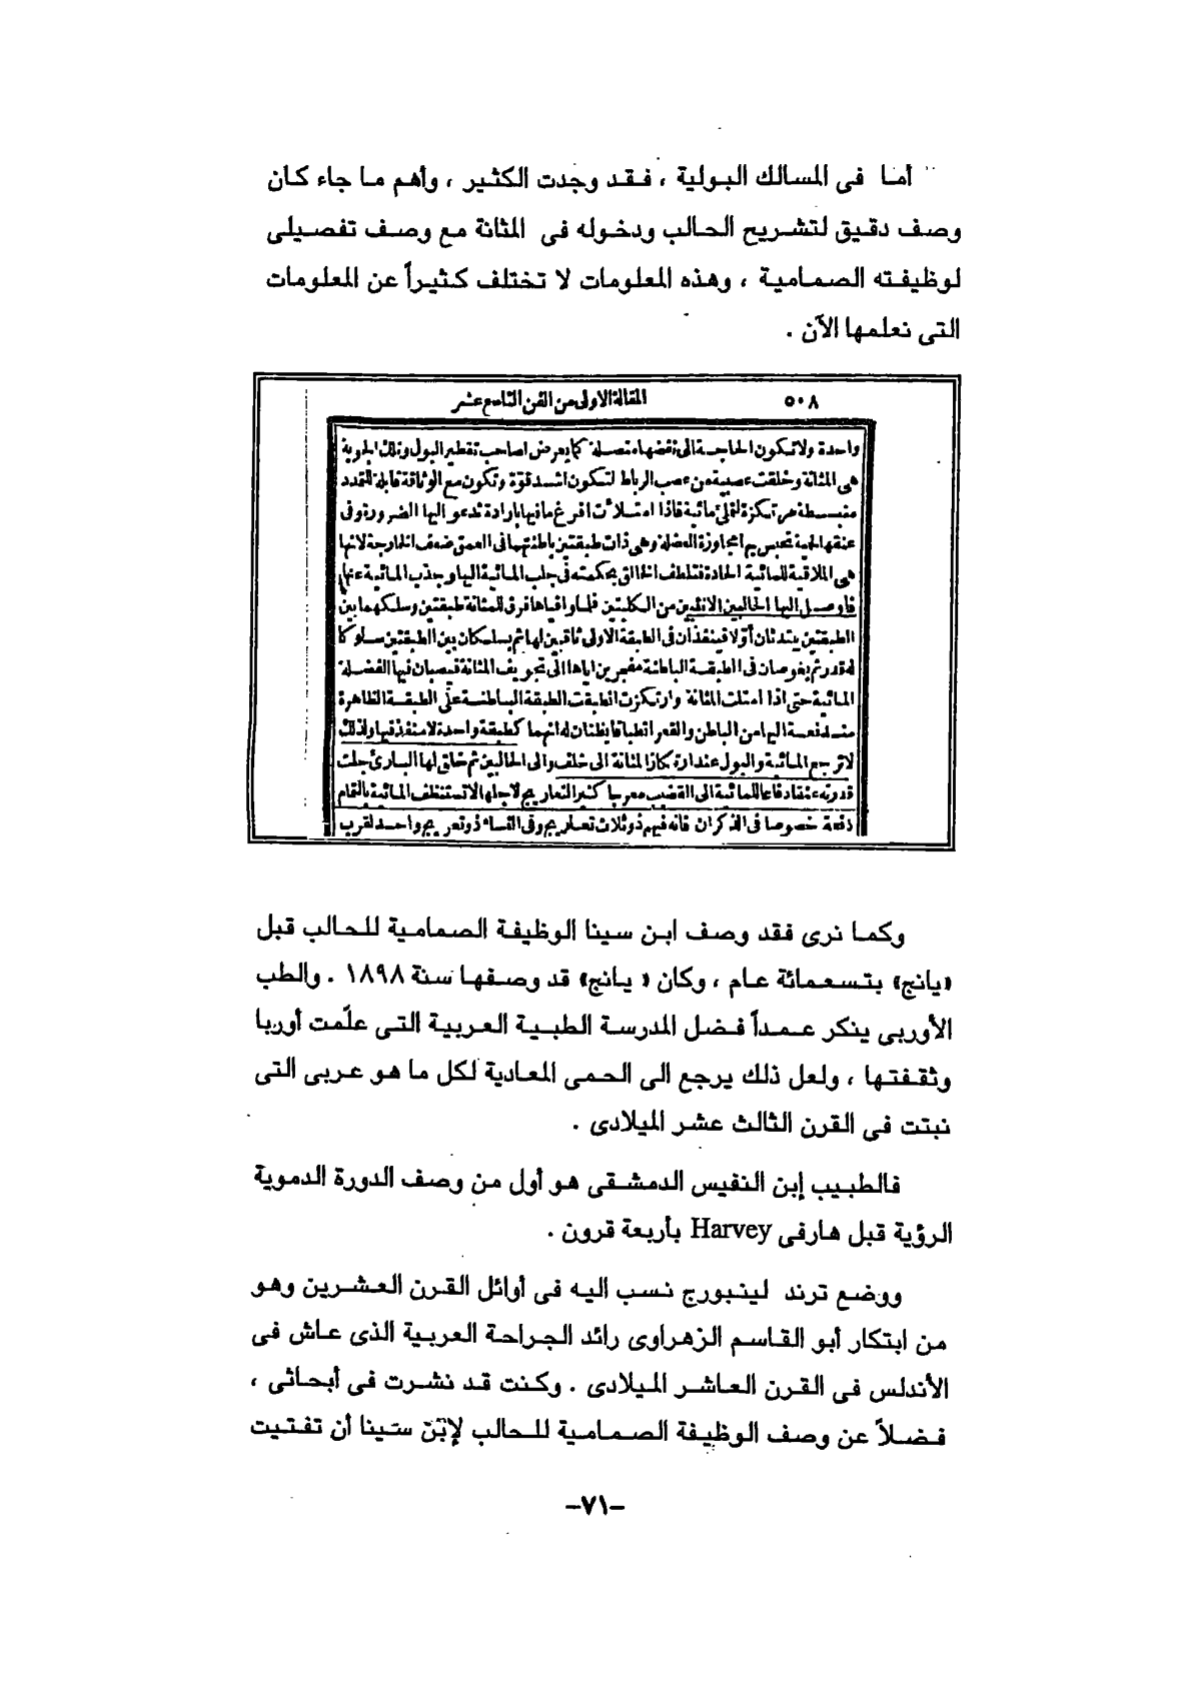 أما فى المسالك البولية ، فقد وجدت الكثير ، وأهم ما جاء كان
وصف دقيق لتشريح الحالب ودخوله فى المثانة مع وصف تفصيلى
لوظيفته الصمامية ، وهذه المعلومات لا تختلف كثيراً عن المعلومات
التى نعلمها الآن .
المقالة الاولى من الفن التاسع عشر ٥٠٨
واحدة ولا تكون الحاجة الى نفضها متصلة كما يعرض لصاحب تقطير البول وتلك الجوبة
هى المثانة وخلقت عصبية من عصب الرباط لتكون اشد قوة وتكون مع الوثاقة قابلة للتمدد
منبسطة مرتكزة لتملئ مائية فاذا امتلأت افرغ ما فيها بارادة تدعو اليها الضرورة وفى
عنقها لحمية تحبس بمجاوزة العضلة وهى ذات طبقتين باطنتهما فى العمق ضعف الخارجة لانها
هى الملاقية للمائية الحادة فتلطف الخالق بحكمته فى جلب المائية اليها وجذب المائية عنها
فاوصل اليها الحالبين الاتيين من الكليتين فلما وافياها فرق للمثانة طبقتين وسلكهما بين
الطبقتين يبتدئان أولا فينفذان فى الطبقة الاولى ثاقبين لها ثم يسلكان بين الطبقتين سلوكا
له قدر ثم يغوصان فى الطبقة الباطنة مفجرين اياها الى تجويف المثانة فيصبان فيها الفضلة
المائية حتى اذا امتلت المثانة وارتكزت انطبقت الطبقة الباطنة على الطبقة الظاهرة
مندفعة اليها من الباطن والقعر انطباقا يظنان له انهما كطبقة واحدة لا منفذ فيها ولذلك
لا ترجع المائية والبول عند ارتكاز المثانة الى خلف والى الحالبين ثم خلق لها البارئ جلت
قدرته عنقا دفاعا للمائية الى القضيب معرجا كثير التعاريج لاجلها لا تستنظف المائية بالتمام
دفعة خصوصا فى الذكران فانه فيهم ذو ثلاث تعاريج وفى النساء ذو تعريج واحد لقرب
وكما نرى فقد وصف ابن سينا الوظيفة الصمامية للحالب قبل
«يانج» بتسعمائة عام ، وكان « يانج» قد وصفها سنة ١٨٩٨ . والطب
الأوربى ينكر عمداً فضل المدرسة الطبية العربية التى علّمت أوربا
وثقفتها ، ولعل ذلك يرجع الى الحمى المعادية لكل ما هو عربى التى
نبتت فى القرن الثالث عشر الميلادى .
فالطبيب إبن النفيس الدمشقى هو أول من وصف الدورة الدموية
الرؤية قبل هارفى Harvey بأربعة قرون .
ووضع ترند لينبورج نسب اليه فى أوائل القرن العشرين وهو
من ابتكار أبو القاسم الزهراوى رائد الجراحة العربية الذى عاش فى
الأندلس فى القرن العاشر الميلادى . وكنت قد نشرت فى أبحاثى ،
فضلاً عن وصف الوظيفة الصمامية للحالب لإبن سينا أن تفتيت
-٧١-